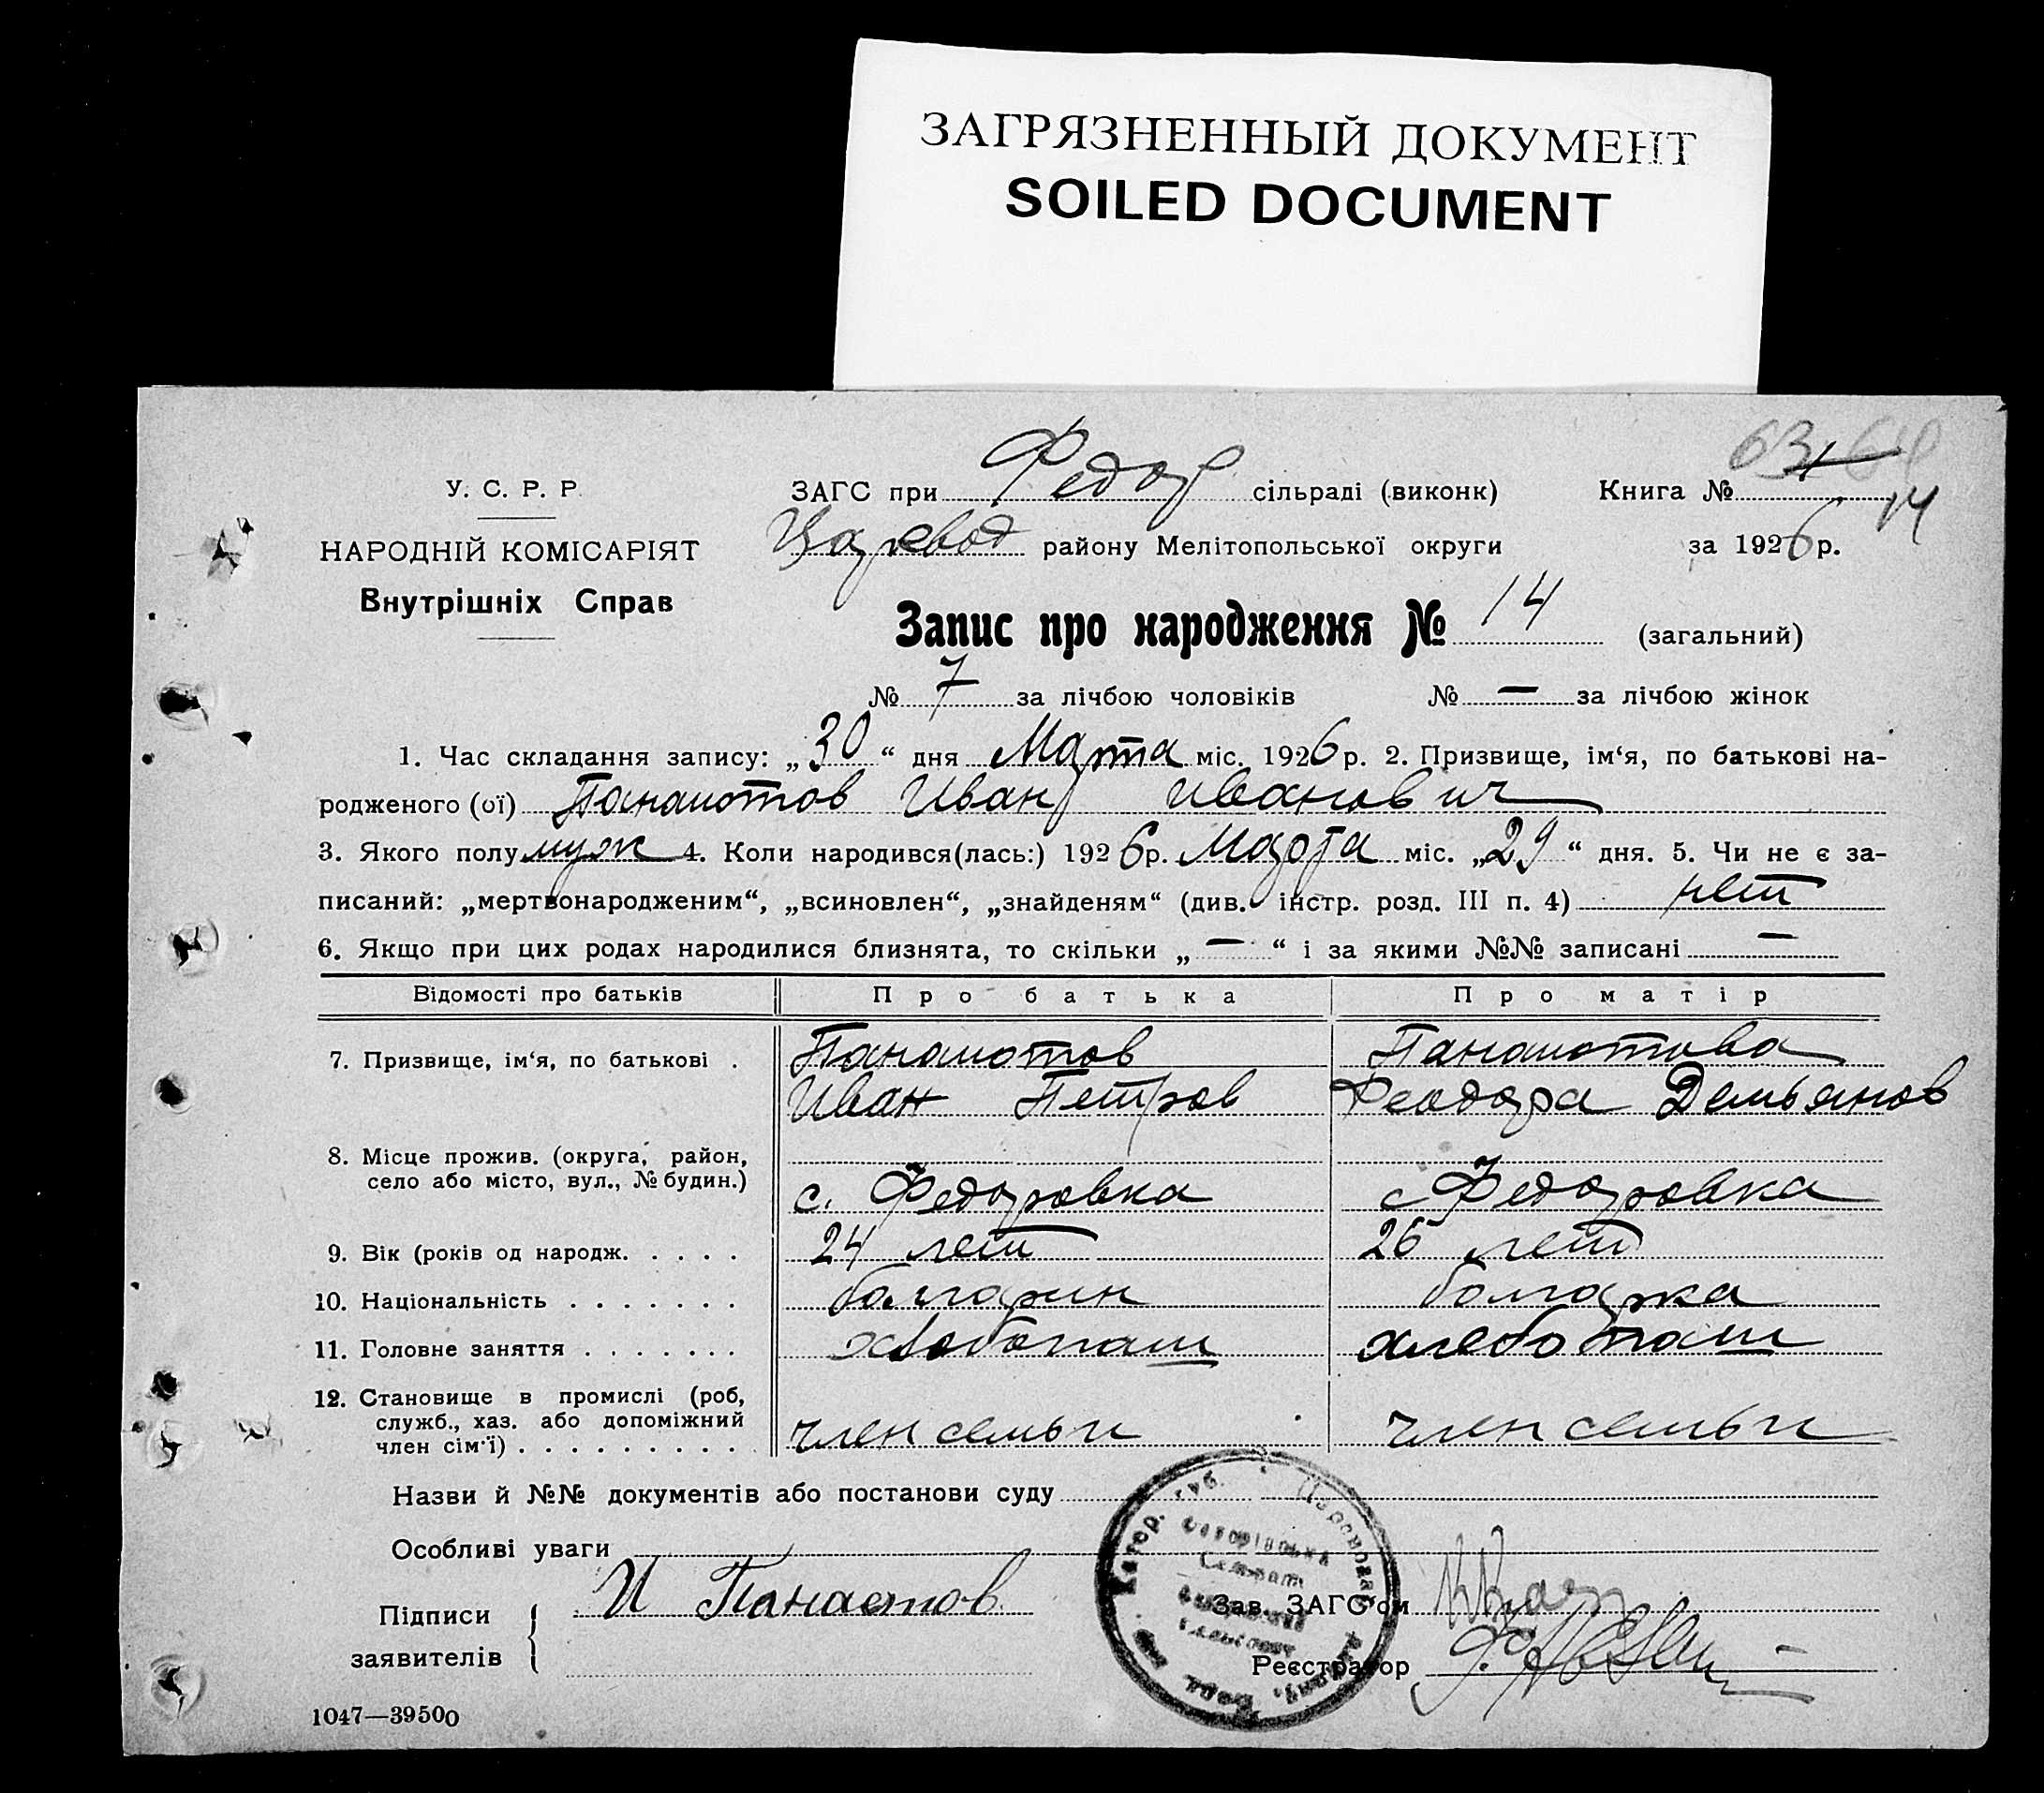 ЗАГРЯЗНЕННЫЙ ДОКУМЕНТ
SOILED DOCUMENT
63 64
У. С. Р. Р. ЗАГС при Федор сільраді (виконк) Книга №
14
НАРОДНІЙ КОМІСАРІЯТ Царевод району Мелітопольської округи за 1926 р.
Внутрішніх Справ
Запис про народження № 14 (загальний)
№ 7 за лічбою чоловіків № — за лічбою жінок
1. Час складання запису: „30“ дня Марта міс. 1926 р. 2. Призвище, ім‘я, по батькові на-
родженого (ої) Панаиотов Иван Иванович
3. Якого полу муж 4. Коли народився(лась:) 1926 р. Марта міс. „29“ дня. 5. Чи не є за-
писаний: „мертвонародженим“, „всиновлен“, „знайденям“ (див. інстр. розд. III п. 4) нет
6. Якщо при цих родах народилися близнята, то скільки „—“ і за якими №№ записані —
Відомості про батьків Про батька Про матір
7. Призвище, ім‘я, по батькові . Панаиотов Панаиотова
Иван Петров Феодора Демьянов
8. Місце прожив. (округа, район,
село або місто, вул., № будин.) с. Федоровка с Федоровка
9. Вік (років од народж. . . . . 24 лет 26 лет
10. Національність . . . . . . . болгарин болгарка
11. Головне заняття . . . . . . . хлебопаш хлебопаш
12. Становище в промислі (роб,
служб., хаз. або допоміжний
член сім‘ї) . . . . . . . . . член семьи член семьи
Назви й №№ документів або постанови суду
Особливі уваги
Підписи
заявителів И Панаотов
Зав. ЗАГС‘ом
Реєстратор
1047—39500